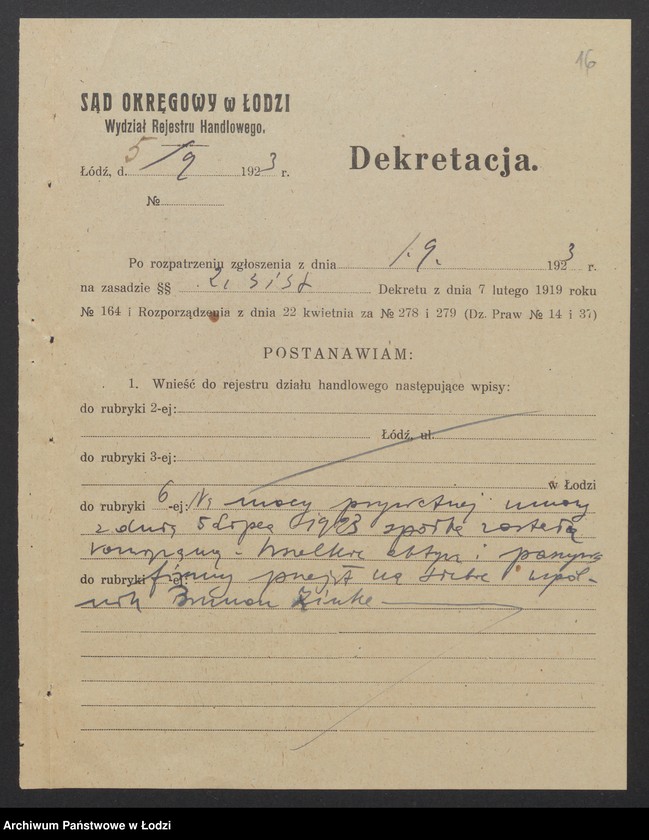 16
SĄD OKRĘGOWY w ŁODZI
Wydział Rejestru Handlowego.
Dekretacja.
Łódź, d. 5/9 1923 r.
№
Po rozpatrzeniu zgłoszenia z dnia 1.9. 1923 r.
na zasadzie §§ Dekretu z dnia 7 lutego 1919 roku
№ 164 i Rozporządzenia z dnia 22 kwietnia za № 278 i 279 (Dz. Praw № 14 i 37)
POSTANAWIAM:
1. Wnieść do rejestru działu handlowego następujące wpisy:
do rubryki 2-ej:
Łódź, ul.
do rubryki 3-ej:
w Łodzi
do rubryki 6-ej: Na mocy prywatnej umowy
z dnia 5 Lipca 1923 spółka została
rozwiązaną - Wszelkie aktywa i pasywa
do rubryki -ej: firmy przejął na siebie wspól-
nik Brunon Zinke
Archiwum Państwowe w Łodzi